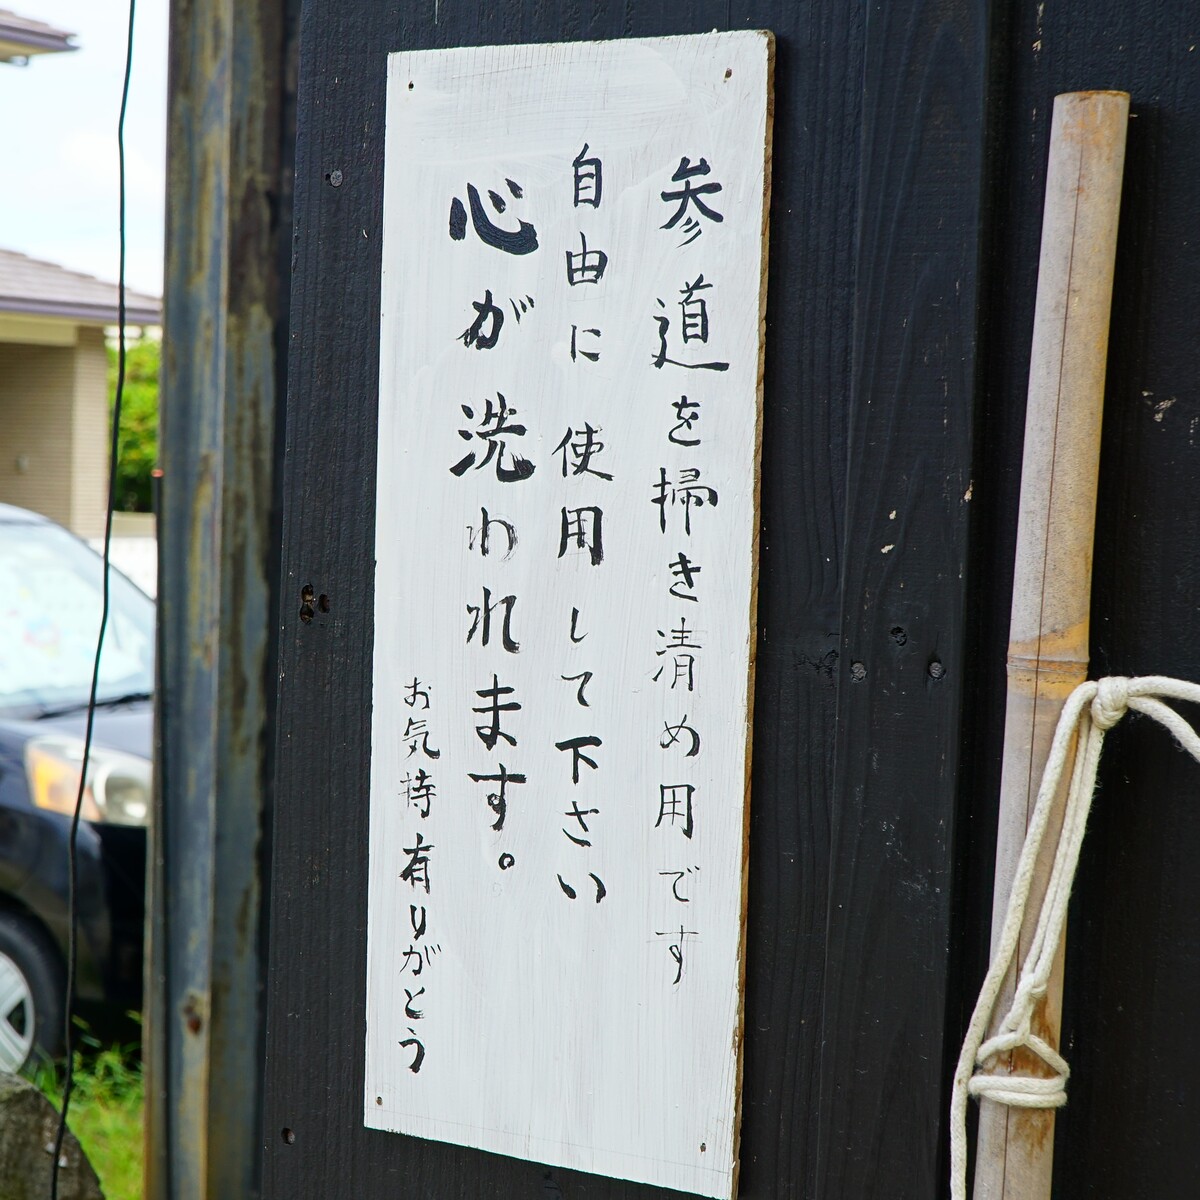 参道を掃き清め用です
自由に使用して下さい
心が洗われます。
お気持有りがとう